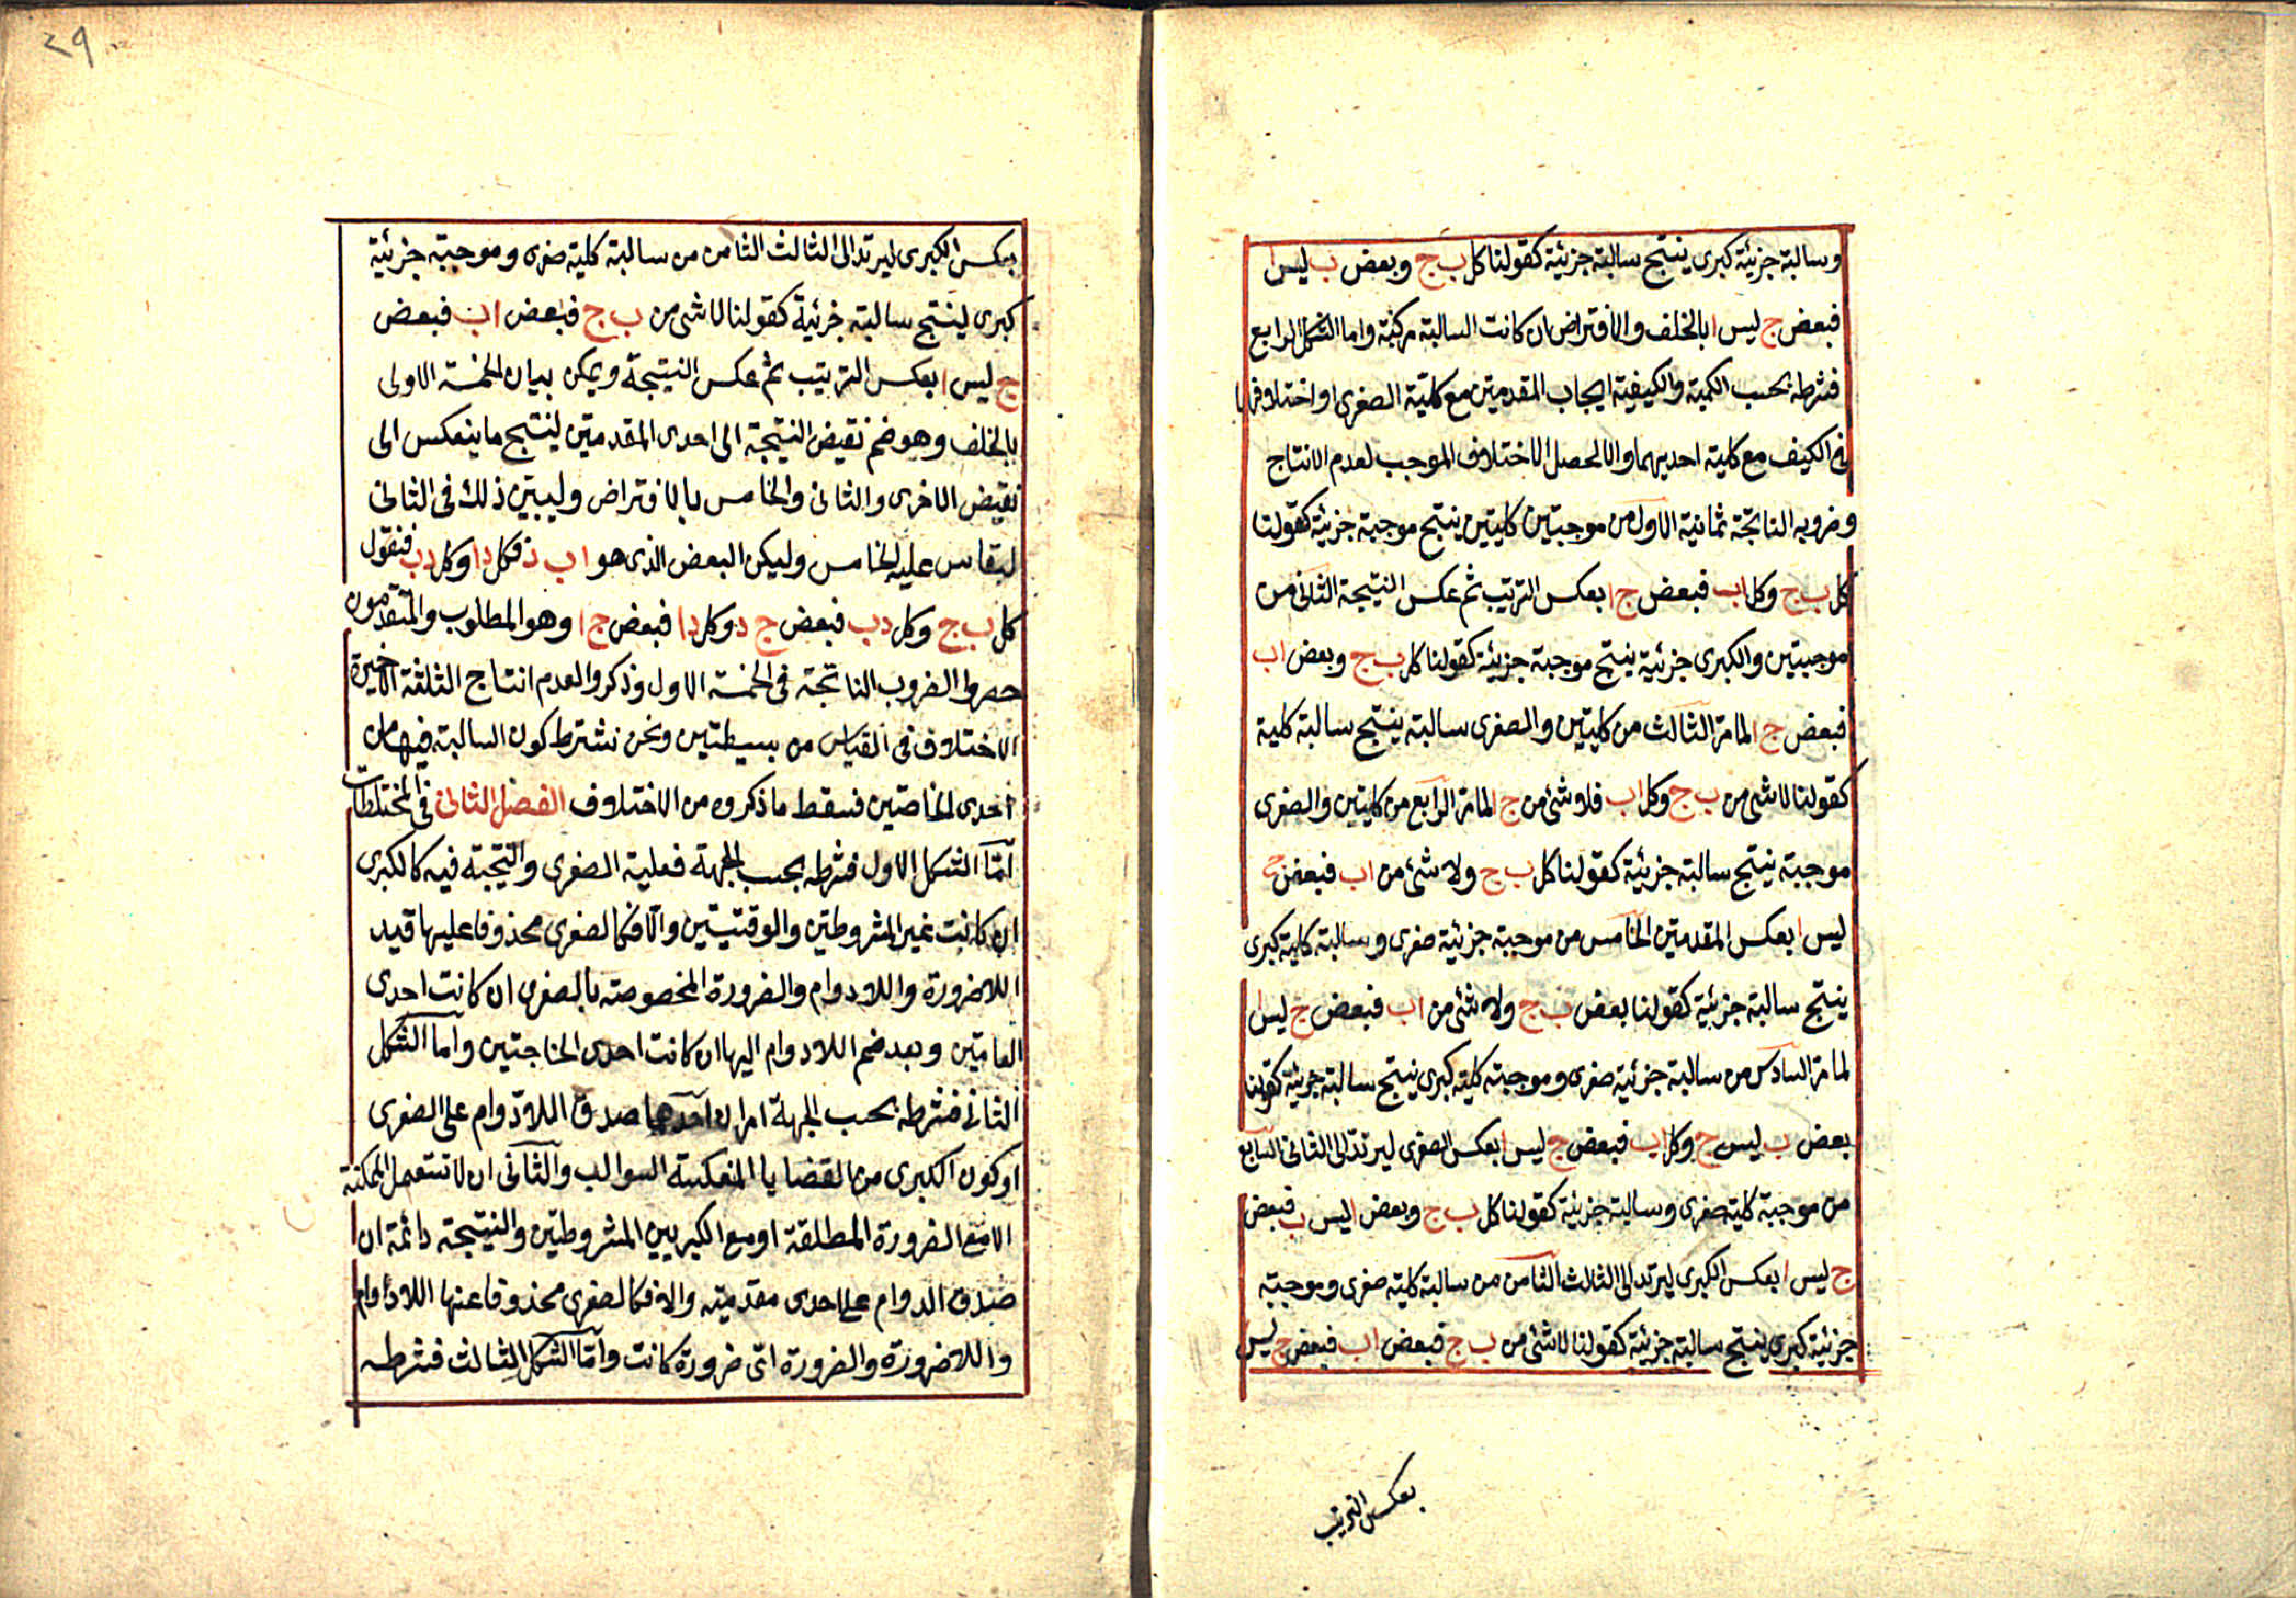 وسالبة جزئية كبرى ينتج سالبة جزئية كقولنا كل ب ج وبعض ب ليس ا
فبعض ج ليس ا بالخلف والافتراض ان كانت السالبة مركبة واما الشكل الرابع
فشرطه بحسب الكمية والكيفية ايجاب المقدمتين مع كلية الصغرى او اختلافهما
في الكيف مع كلية احديهما والا لحصل الاختلاف الموجب لعدم الانتاج
وضروبه الناتجة ثمانية الاول من موجبتين كليتين ينتج موجبة جزئية كقولنا
كل ب ج وكل ا ب فبعض ج ا بعكس الترتيب ثم عكس النتيجة الثاني من
موجبتين والكبرى جزئية ينتج موجبة جزئية كقولنا كل ب ج وبعض ا ب
فبعض ج ا لما مر الثالث من كليتين والصغرى سالبة ينتج سالبة كلية
كقولنا لا شئ من ب ج وكل ا ب فلا شئ من ج ا لما مر الرابع من كليتين والصغرى
موجبة ينتج سالبة جزئية كقولنا كل ب ج ولا شئ من ا ب فبعض ج
ليس ا بعكس المقدمتين الخامس من موجبة جزئية صغرى وسالبة كلية كبرى
ينتج سالبة جزئية كقولنا بعض ب ج ولا شئ من ا ب فبعض ج ليس ا
لما مر السادس من سالبة جزئية صغرى وموجبة كلية كبرى ينتج سالبة جزئية كقولنا
بعض ب ليس ج وكل ا ب فبعض ج ليس ا بعكس الصغرى ليرتد الى الثاني السابع
من موجبة كلية صغرى وسالبة جزئية كقولنا كل ب ج وبعض ا ليس ب فبعض
ج ليس ا بعكس الكبرى ليرتد الى الثالث الثامن من سالبة كلية صغرى وموجبة
جزئية كبرى ينتج سالبة جزئية كقولنا لا شئ من ب ج فبعض ا ب فبعض ج ليس ا
بعكس الترتيب
٢٩
بعكس الكبرى ليرتد الى الثالث الثامن من سالبة كلية صغرى وموجبة جزئية
كبرى لينتج سالبة جزئية كقولنا لا شئ من ب ج فبعض ا ب فبعض
ج ليس ا بعكس الترتيب ثم عكس النتيجة ويمكن بيان الخمسة الاولى
بالخلف وهو ضم نقيض النتيجة الى احدى المقدمتين لينتج ما ينعكس الى
نقيض الاخرى والثاني والخامس بالافتراض وليبين ذلك في الثاني
ليقاس عليه الخامس وليكن البعض الذى هو ا ب د فكل د ا وكل د ب فنقول
كل ب ج وكل د ب فبعض ج د وكل د ا فبعض ج ا وهو المطلوب والمتقدمون
حصروا الضروب الناتجة في الخمسة الاول وذكروا لعدم انتاج الثلثة الاخيرة
الاختلاف في القياس من بسيطتين ونحن نشترط كون السالبة فيها من
احدى الخاصتين فسقط ما ذكروه من الاختلاف الفصل الثاني في المختلطات
اما الشكل الاول فشرطه بحسب الجهة فعلية الصغرى والنتيجة فيه كالكبرى
ان كانت غير المشروطتين والوقتيتين والا فكالصغرى محذوفا عليها قيد
اللاضرورة واللادوام والضرورة المخصوصة بالصغرى ان كانت احدى
العامتين وبعد ضم اللادوام اليها ان كانت احدى الخاجتين واما الشكل
الثاني فشرطه بحسب الجهة امران احدهما صدق اللادوام على الصغرى
او كون الكبرى من القضايا المنعكسة السوالب والثاني ان لا تستعمل الممكنة
الا مع الضرورة المطلقة او مع الكبريين المشروطتين والنتيجة دائمة ان
صدق الدوام على احدى مقدميته والا فكالصغرى محذوفا عنها اللادوام
واللاضرورة والضرورة اى ضرورة كانت واما الشكل الثالث فشرطه